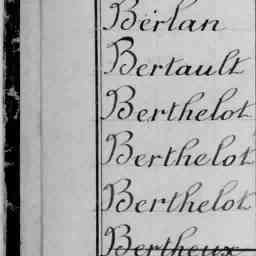 Bérlan
Bertault
Berthelot
Berthelot
Berthelot
Bertheux